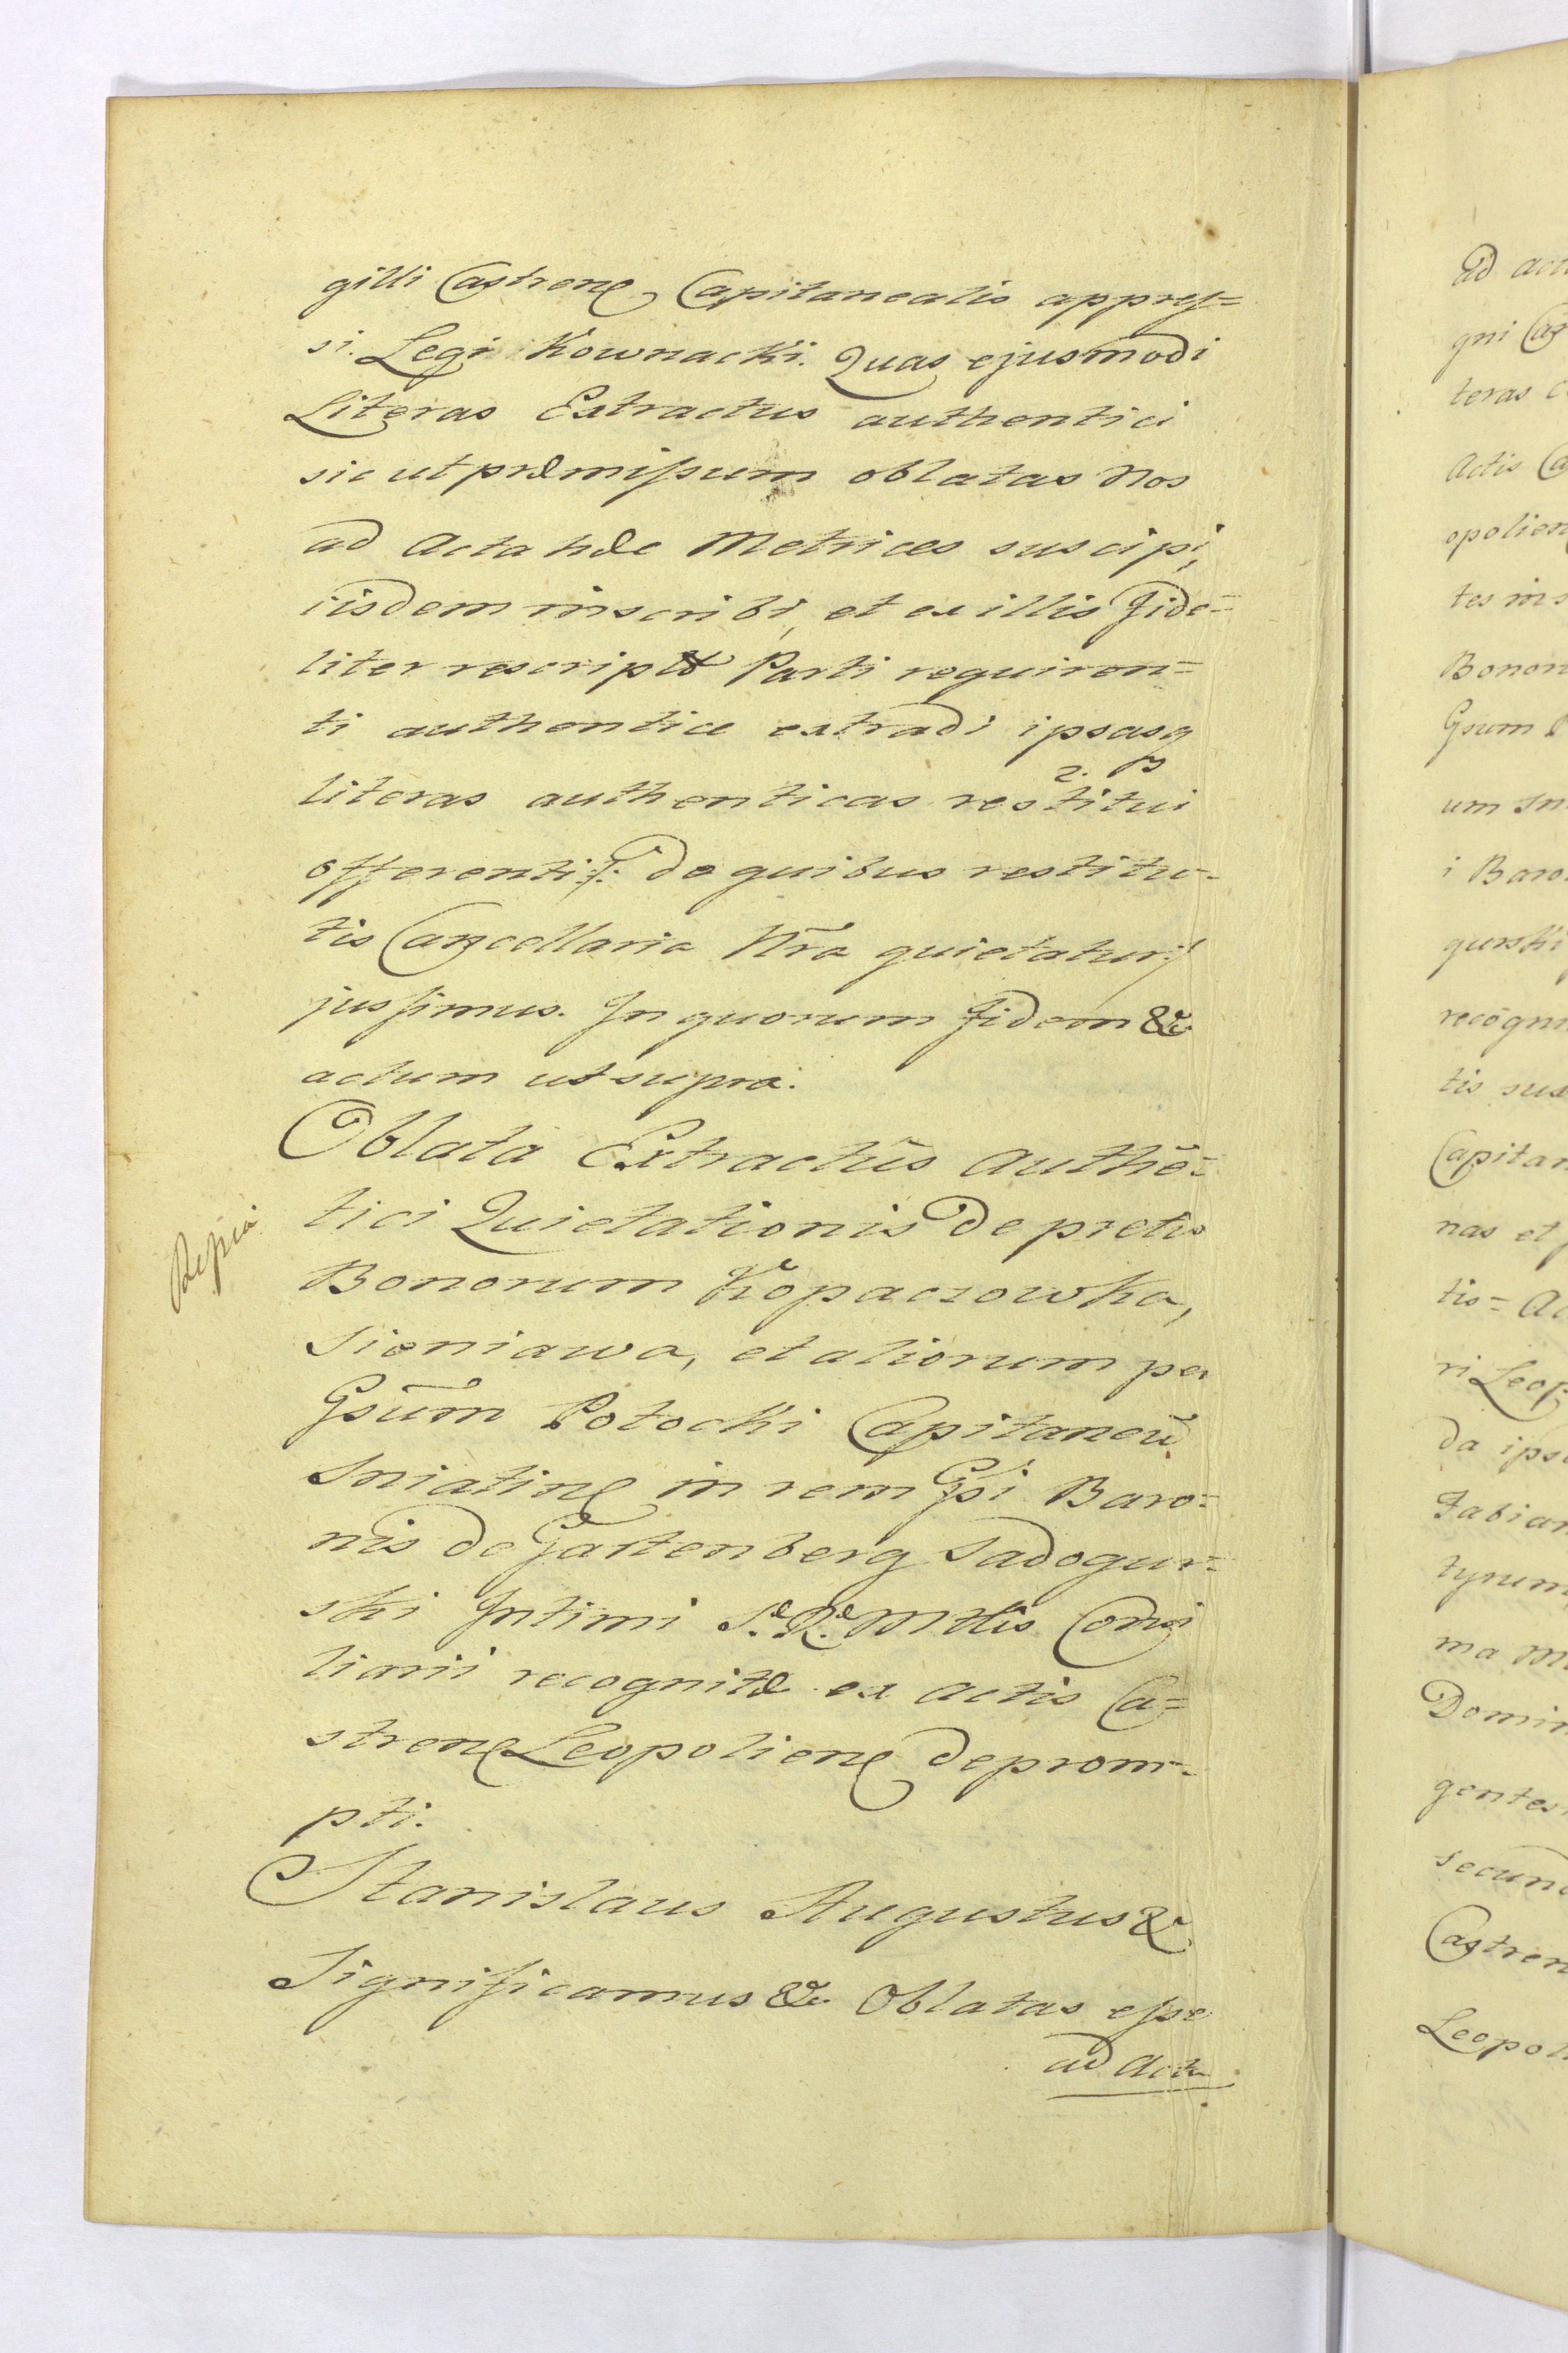 gilli Castrens Capitanealis appres=
si. Legi Kownacki. Quas ejusmodi
Literas Extractus authentici
sic ut præmissum oblatas Nos
ad Acta hæc Metrices suscipi,
iisdem inscribi, et ex illis Fide=
liter rescriptas Parti requiren=
ti authentice extradi ipsasq
literas authenticas restitui
offerenti /: de quibus restitu-
tis Cancellaria Nra quietatur :/
jussimus. In quorum Fidem &c
actum ut supra.
Oblata Extractûs Authē=
tici Quietationis de pretio
Bonorum Kopaczowka,
Sieniawa, et aliorum per
Gsum Potocki Capitaneū
Sniatins in rem Gsi Baro=
nis de Gartenberg Sadogur=
ski Intimi S. R. Mttis Consi
liarii recognitæ ex Actis Ca=
strens Leopoliens deprom=
pti.
Stanislaus Augustus &
Significamus &c Oblatas esse
ad Acta
Ad act
gni Cas
teras
Actis Ca
opoliens
tes ins
Bonor
Gsum
um Sn
i Baro
gurski
recogni
tis sua
Capitan
nas et
tis= Ac
ri Leop
da ips
Fabian
tyrum
ma M
Domin
gentes
secund
Castren
Leopol